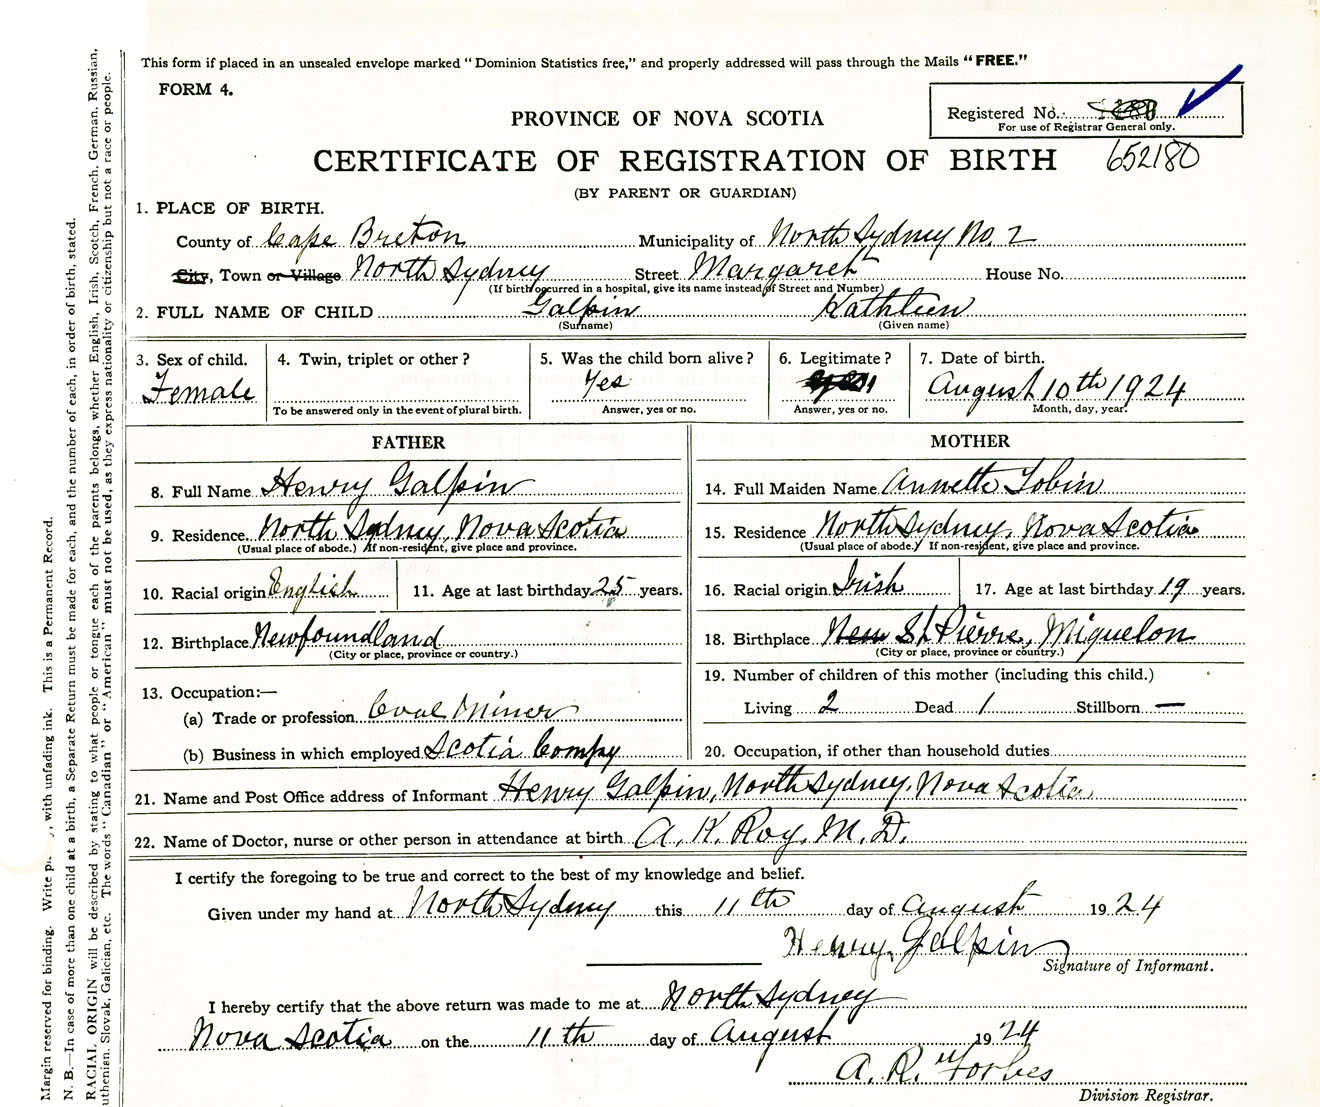 This form if placed in an unsealed envelope marked "Dominion Statistics free," and properly addressed will pass through the Mails "FREE."
FORM 4.
Registered No.
For use of Registrar General only.
PROVINCE OF NOVA SCOTIA
CERTIFICATE OF REGISTRATION OF BIRTH 652180
(BY PARENT OR GUARDIAN)
1. PLACE OF BIRTH.
County of Cape Breton Municipality of North Sydney No. 2
City, Town or Village North Sydney Street Margaret House No.
(If birth occurred in a hospital, give its name instead of Street and Number)
2. FULL NAME OF CHILD Galpin Kathleen
(Surname) (Given name)
3. Sex of child. 4. Twin, triplet or other? 5. Was the child born alive? 6. Legitimate? 7. Date of birth.
Female Yes August 10th 1924
To be answered only in the event of plural birth. Answer, yes or no. Answer, yes or no. Month, day, year.
FATHER MOTHER
8. Full Name Henry Galpin 14. Full Maiden Name Annette Tobin
9. Residence North Sydney, Nova Scotia 15. Residence North Sydney, Nova Scotia
(Usual place of abode.) If non-resident, give place and province. (Usual place of abode.) If non-resident, give place and province.
10. Racial origin English 11. Age at last birthday 25 years. 16. Racial origin Irish 17. Age at last birthday 19 years.
12. Birthplace Newfoundland 18. Birthplace New St Pierre, Miquelon
(City or place, province or country.) (City or place, province or country.)
13. Occupation:— 19. Number of children of this mother (including this child.)
(a) Trade or profession Coal Miner Living 2 Dead 1 Stillborn —
(b) Business in which employed Scotia Compy 20. Occupation, if other than household duties
21. Name and Post Office address of Informant Henry Galpin, North Sydney, Nova Scotia
22. Name of Doctor, nurse or other person in attendance at birth A. K. Roy, M. D.
I certify the foregoing to be true and correct to the best of my knowledge and belief.
Given under my hand at North Sydney this 11th day of August 1924
Henry Galpin
Signature of Informant.
I hereby certify that the above return was made to me at North Sydney
Nova Scotia on the 11th day of August 1924
A. R. Forbes
Division Registrar.
Margin reserved for binding. Write with unfading ink. This is a Permanent Record.
N. B.—In case of more than one child at a birth, a Separate Return must be made for each, and the number of each, in order of birth, stated.
RACIAL ORIGIN will be described by stating to what people or tongue each of the parents belongs, whether English, Irish, Scotch, French, German, Russian,
uthenian, Slovak, Galician, etc. The words "Canadian" or "American" must not be used, as they express nationality or citizenship but not a race or people.